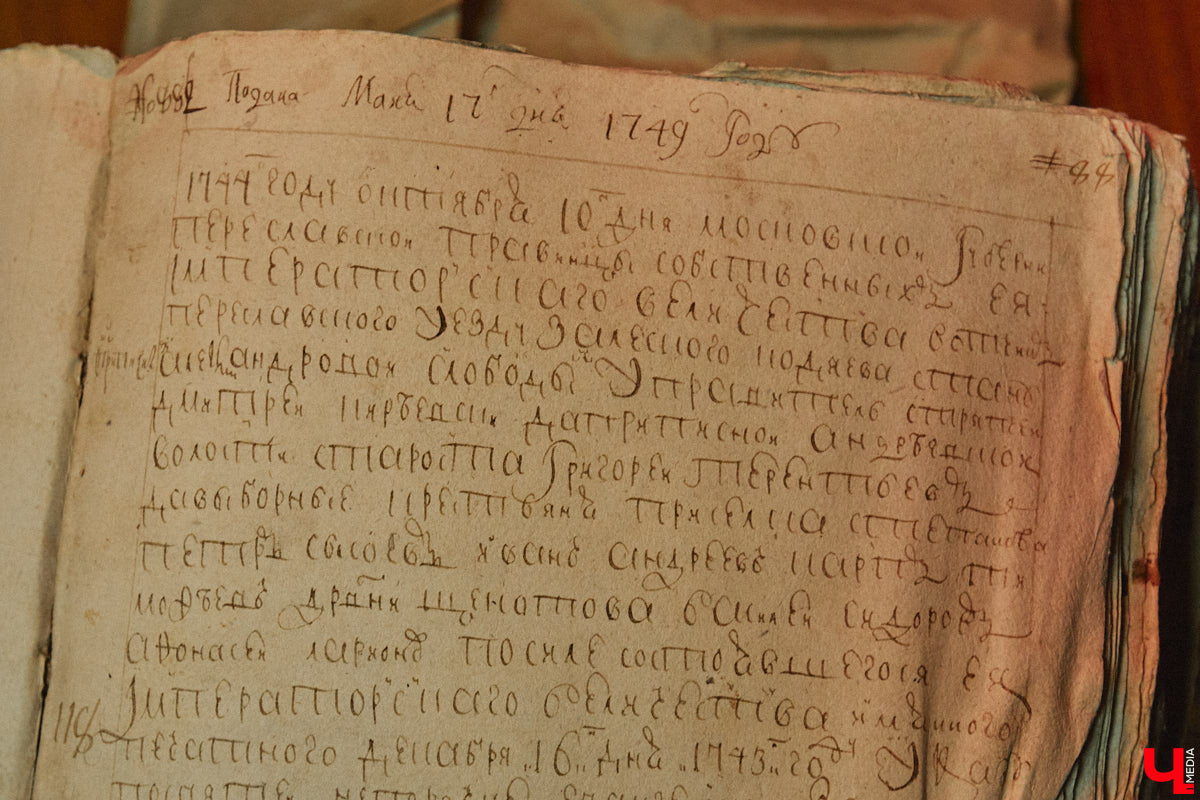 Подана Маиа 17 дня 1749 Году
1744 году октября 10 дня московской губернии
переславской правинцы собственных ея
императорскаго величества вотчин
переславского уезду залеского кодяева стану
александровой слободы управитель стряпчей
дмитрей киръевской даприписной андръевской
волости староста григорей терентьевъ
давыборные крестьяня приселка степанова
петръ сысоевъ иванъ андреевъ карпъ ти
мофъевъ дрвни щекотова василей сидоровъ
афонасей ларионовъ после состоявшегося ея
императорскаго величества имянного
печатного декабря 16 дня 1743 году указу
118
Ч MEDIA